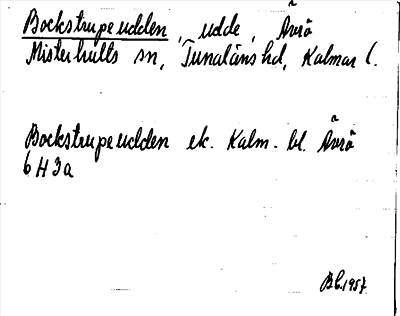 Bockstrupeudden, udde, Ävrö
Misterhults sn, Tunaläns hd, Kalmar l.
Bockstrupeudden ek. Kalm. bl. Ävrö
6 H 3a
1957